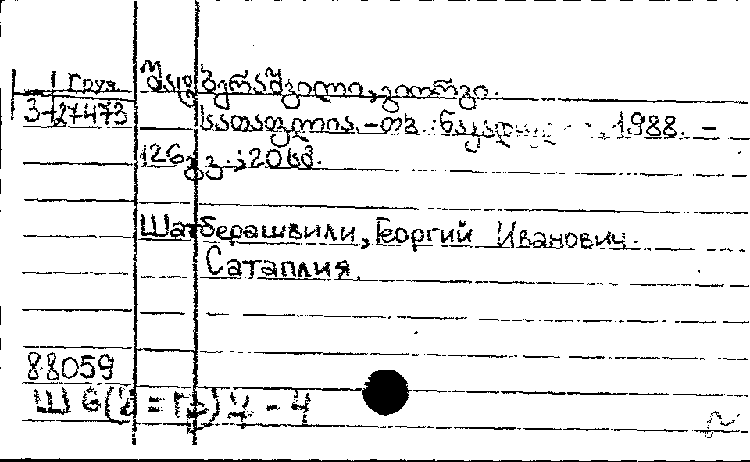 Груз
3-27473
შატბერაშვილი, გიორგი.
სათაფლია. - თბ.: ნაკადული, 1988. -
126გვ.; 20სმ.
Шатберашвили, Георгий Иванович.
Сатаплия.
88059
Ш 6(2=Гр)7-4